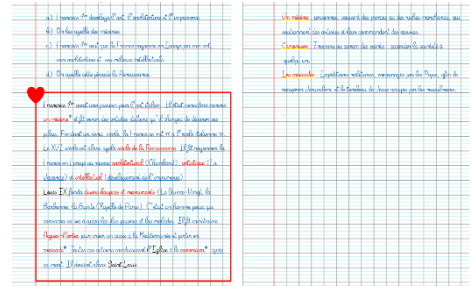 a) François 1er développe l'art, l'architecture et l'imprimerie.
b) On les appelle des mécènes.
c) François 1er veut que la France rayonne en Europe par son art,
son architecture et ses milieux intellectuels.
d) On appelle cette période la Renaissance.
François 1er avait une passion pour l'art italien. Il était considéré comme
un mécène* et fit venir des artistes italiens qu'il chargea de décorer ses
palais. Pendant un siècle, la France
Le XVI siècle est alors appelé siècle de la Renaissance. Il fit rayonner la
France en Europe au niveau architectural (Chambord), artistique (La
Joconde) et intellectuel (développement de l'imprimerie).
Louis IX fonda divers hospices et monuments (Les Quinze-Vingt, la
Sorbonne, la Sainte Chapelle de Paris). C'était un homme pieux qui
consacra sa vie à aider les pauvres et les malades. Il fit construire
Aigues-Mortes pour créer un accès à la Méditerranée et partir en
croisade*. Toutes ces actions conduisirent l'Eglise à le canoniser* après
sa mort. Il devient alors Saint Louis.
Un mécène : personne, souvent des princes ou des riches marchands, qui
soutiennent des artistes et leur commandent des œuvres.
Canoniser : Mettre au rang des saints, accorder la sainteté à
quelqu'un.
Les croisades : Expéditions militaires, encouragées par les Papes, afin de
récupérer Jérusalem et le tombeau de Jésus occupés par les musulmans.